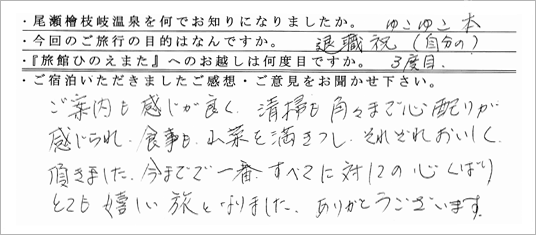 ・尾瀬檜枝岐温泉を何でお知りになりましたか。 ゆこゆこ本
・今回のご旅行の目的はなんですか。 退職祝(自分の)
・『旅館ひのえまた』へのお越しは何度目ですか。 3度目.
・ご宿泊いただきましたご感想・ご意見をお聞かせ下さい。
ご案内も感じが良く、清掃も角々まで心配りが
感じられ、食事も、山菜を満きつし、それぞれおいしく
頂きました。今までで一番、すべてに対しての心くばり
とても嬉しい旅となりました。ありがとうございます。